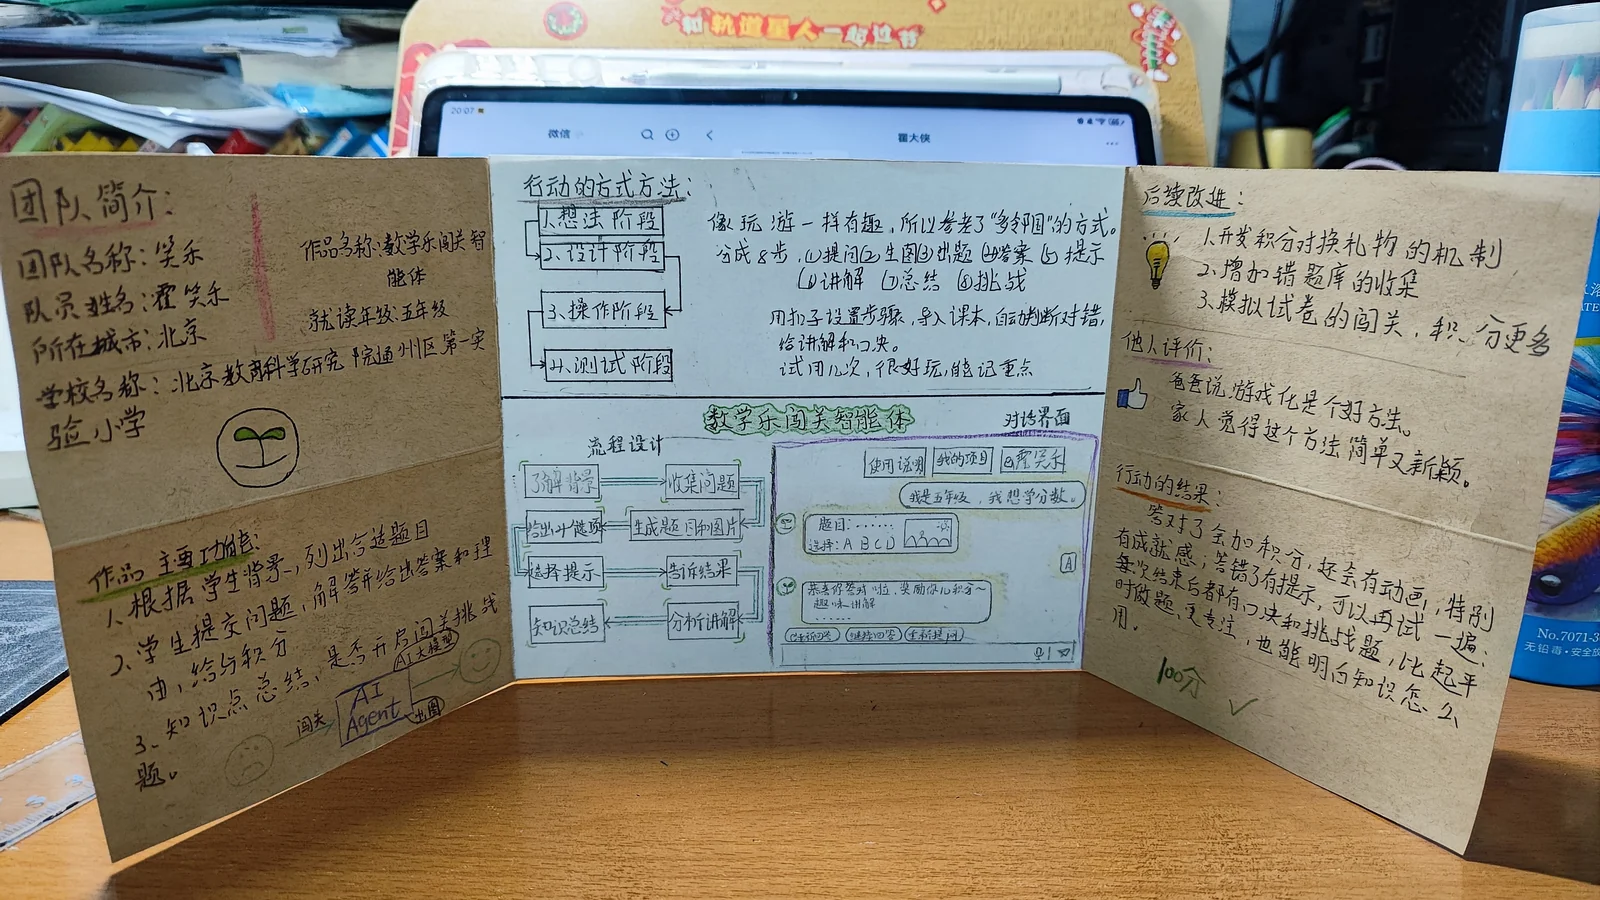 和轨道星人一起过节
20:07
微信
霍大侠
团队简介:
团队名称: 笑乐
队员姓名: 霍笑乐
所在城市: 北京
作品名称: 数学乐闯关智
能体
就读年级: 五年级
学校名称: 北京教育科学研究院通州区第一实
验小学
作品主要功能:
1、根据学生背景,列出合适题目
2、学生提交问题,解答并给出答案和理
由,给与积分
3、知识点总结,是否开启闯关挑战
题。
闯关
AI
Agent
AI大模型
出图
行动的方式方法:
1.想法阶段
2.设计阶段
3.操作阶段
4.测试阶段
像玩游一样有趣,所以参考了“多邻国”的方式。
分成8步,①提问②生图③出题④答案⑤提示
⑥讲解⑦总结⑧挑战
用扣子设置步骤,导入课本,自动判断对错,
给讲解和口决。
试用几次,很好玩,能记重点
数学乐闯关智能体
流程设计
了解背景
收集问题
给出4个选项
生成题目和图片
选择提示
告诉结果
知识总结
分析讲解
对话界面
使用说明
我的项目
霍笑乐
我是五年级,我想学分数。
题目:......
选择: A B C D
A
恭喜你答对啦,奖励你几积分~
趣味讲解
......
重新提问
后续改进:
1.开发积分对换礼物的机制
2.增加错题库的收集
3.模拟试卷的闯关,积分更多
他人评价:
爸爸说,游戏化是个好方法。
家人觉得这个方法简单又新颖。
行动的结果:
答对了会加积分,还会有动画,特别
有成就感;答错了有提示,可以再试一遍;
每次结束后都有口决和挑战题,比起平
时做题,更专注,也能明白知识怎么
用。
100分
No.7071-3
无铅毒·安全放